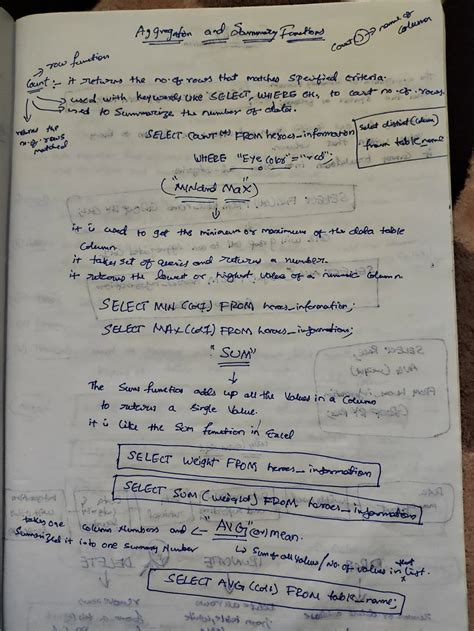 Aggregation and Summary Functions
count( ) → name of column
row function
Count :- it returns the no. of rows that matches specified criteria.
→ used with keywords like SELECT, WHERE etc, to count no. of rows.
→ used to summarize the number of data.
returns the no. of rows matched
SELECT COUNT(*) FROM heroes_information
WHERE "Eye Color" = "red";
select distinct(column)
from table_name
("MIN and MAX")
it is used to get the minimum or maximum of the data table
column
it takes set of queries and returns a number.
it returns the lowest or highest value of a numeric column
SELECT MIN (col1) FROM heroes_information;
SELECT MAX (col1) FROM heroes_information;
"SUM"
The Sum function adds up all the values in a column
to return a single value.
it is like the SUM function in Excel
SELECT weight FROM heroes_information
SELECT SUM (weight) FROM heroes_information
takes one column numbers and ← "AVG" (or) mean.
Summarized it into one summary number
↳ Sum of all values / No. of values in that list.
SELECT AVG (col1) FROM table_name;